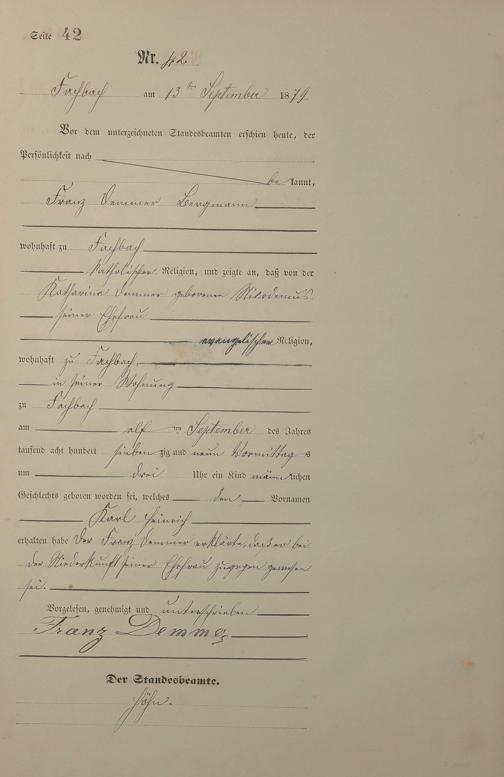 Seite 42
Nr. 42
Fachbach am 13ten September 1879
Vor dem unterzeichneten Standesbeamten erschien heute, der
Persönlichkeit nach
bekannt,
Franz Demmer Bergmann
wohnhaft zu Fachbach
katholischer Religion, und zeigte an, daß von der
Katharina Demmer geborene Nikodemus
seiner Ehefrau
evangelischer Religion,
wohnhaft zu Fachbach,
in seiner Wohnung
zu Fachbach
am elf ten September des Jahres
tausend acht hundert sieben zig und neun Vormittags
um drei Uhr ein Kind männlichen
Geschlechts geboren worden sei, welches den Vornamen
Karl Heinrich
erhalten habe Der Franz Demmer erklärte, daß er bei
der Niederkunft seiner Ehefrau zugegen gewesen
sei.
Vorgelesen, genehmigt und unterschrieben
Franz Demmer
Der Standesbeamte.
Höhn.